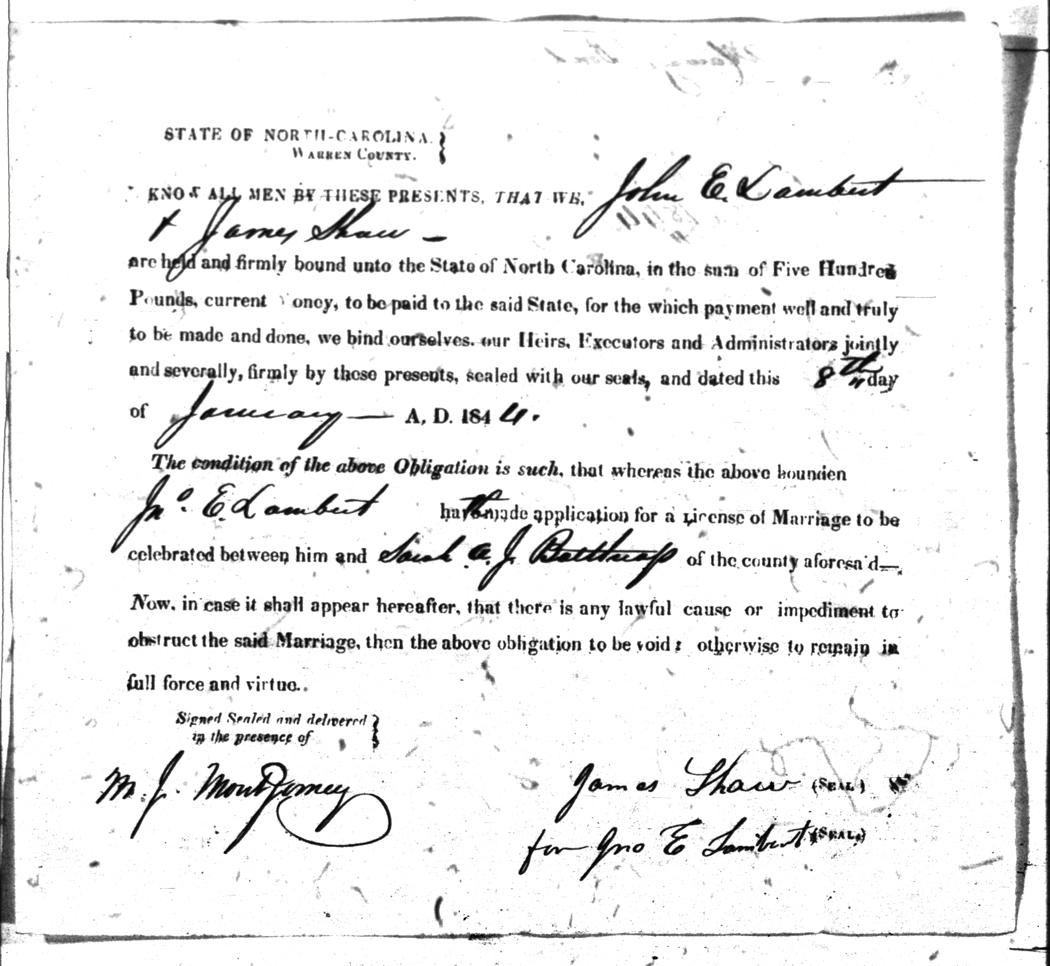 STATE OF NORTH-CAROLINA.
WARREN COUNTY.
KNOW ALL MEN BY THESE PRESENTS, THAT WE, John E. Lambert
+ James Shaw —
are held and firmly bound unto the State of North Carolina, in the sum of Five Hundred
Pounds, current Money, to be paid to the said State, for the which payment well and truly
to be made and done, we bind ourselves. our Heirs, Executors and Administrators jointly
and severally, firmly by these presents, sealed with our seals, and dated this 8th day
of January — A, D. 1844.
The condition of the above Obligation is such, that whereas the above bounden
Jno. E. Lambert hath made application for a License of Marriage to be
celebrated between him and Sarah A. J. Balthrop of the county aforesa'd—.
Now, in case it shall appear hereafter, that there is any lawful cause or impediment to
obstruct the said Marriage, then the above obligation to be void: otherwise to remain in
full force and virtue.
Signed Sealed and delivered
in the presence of
M. J. Montgomery
James Shaw (SEAL)
for Jno E Lambert (SEAL)